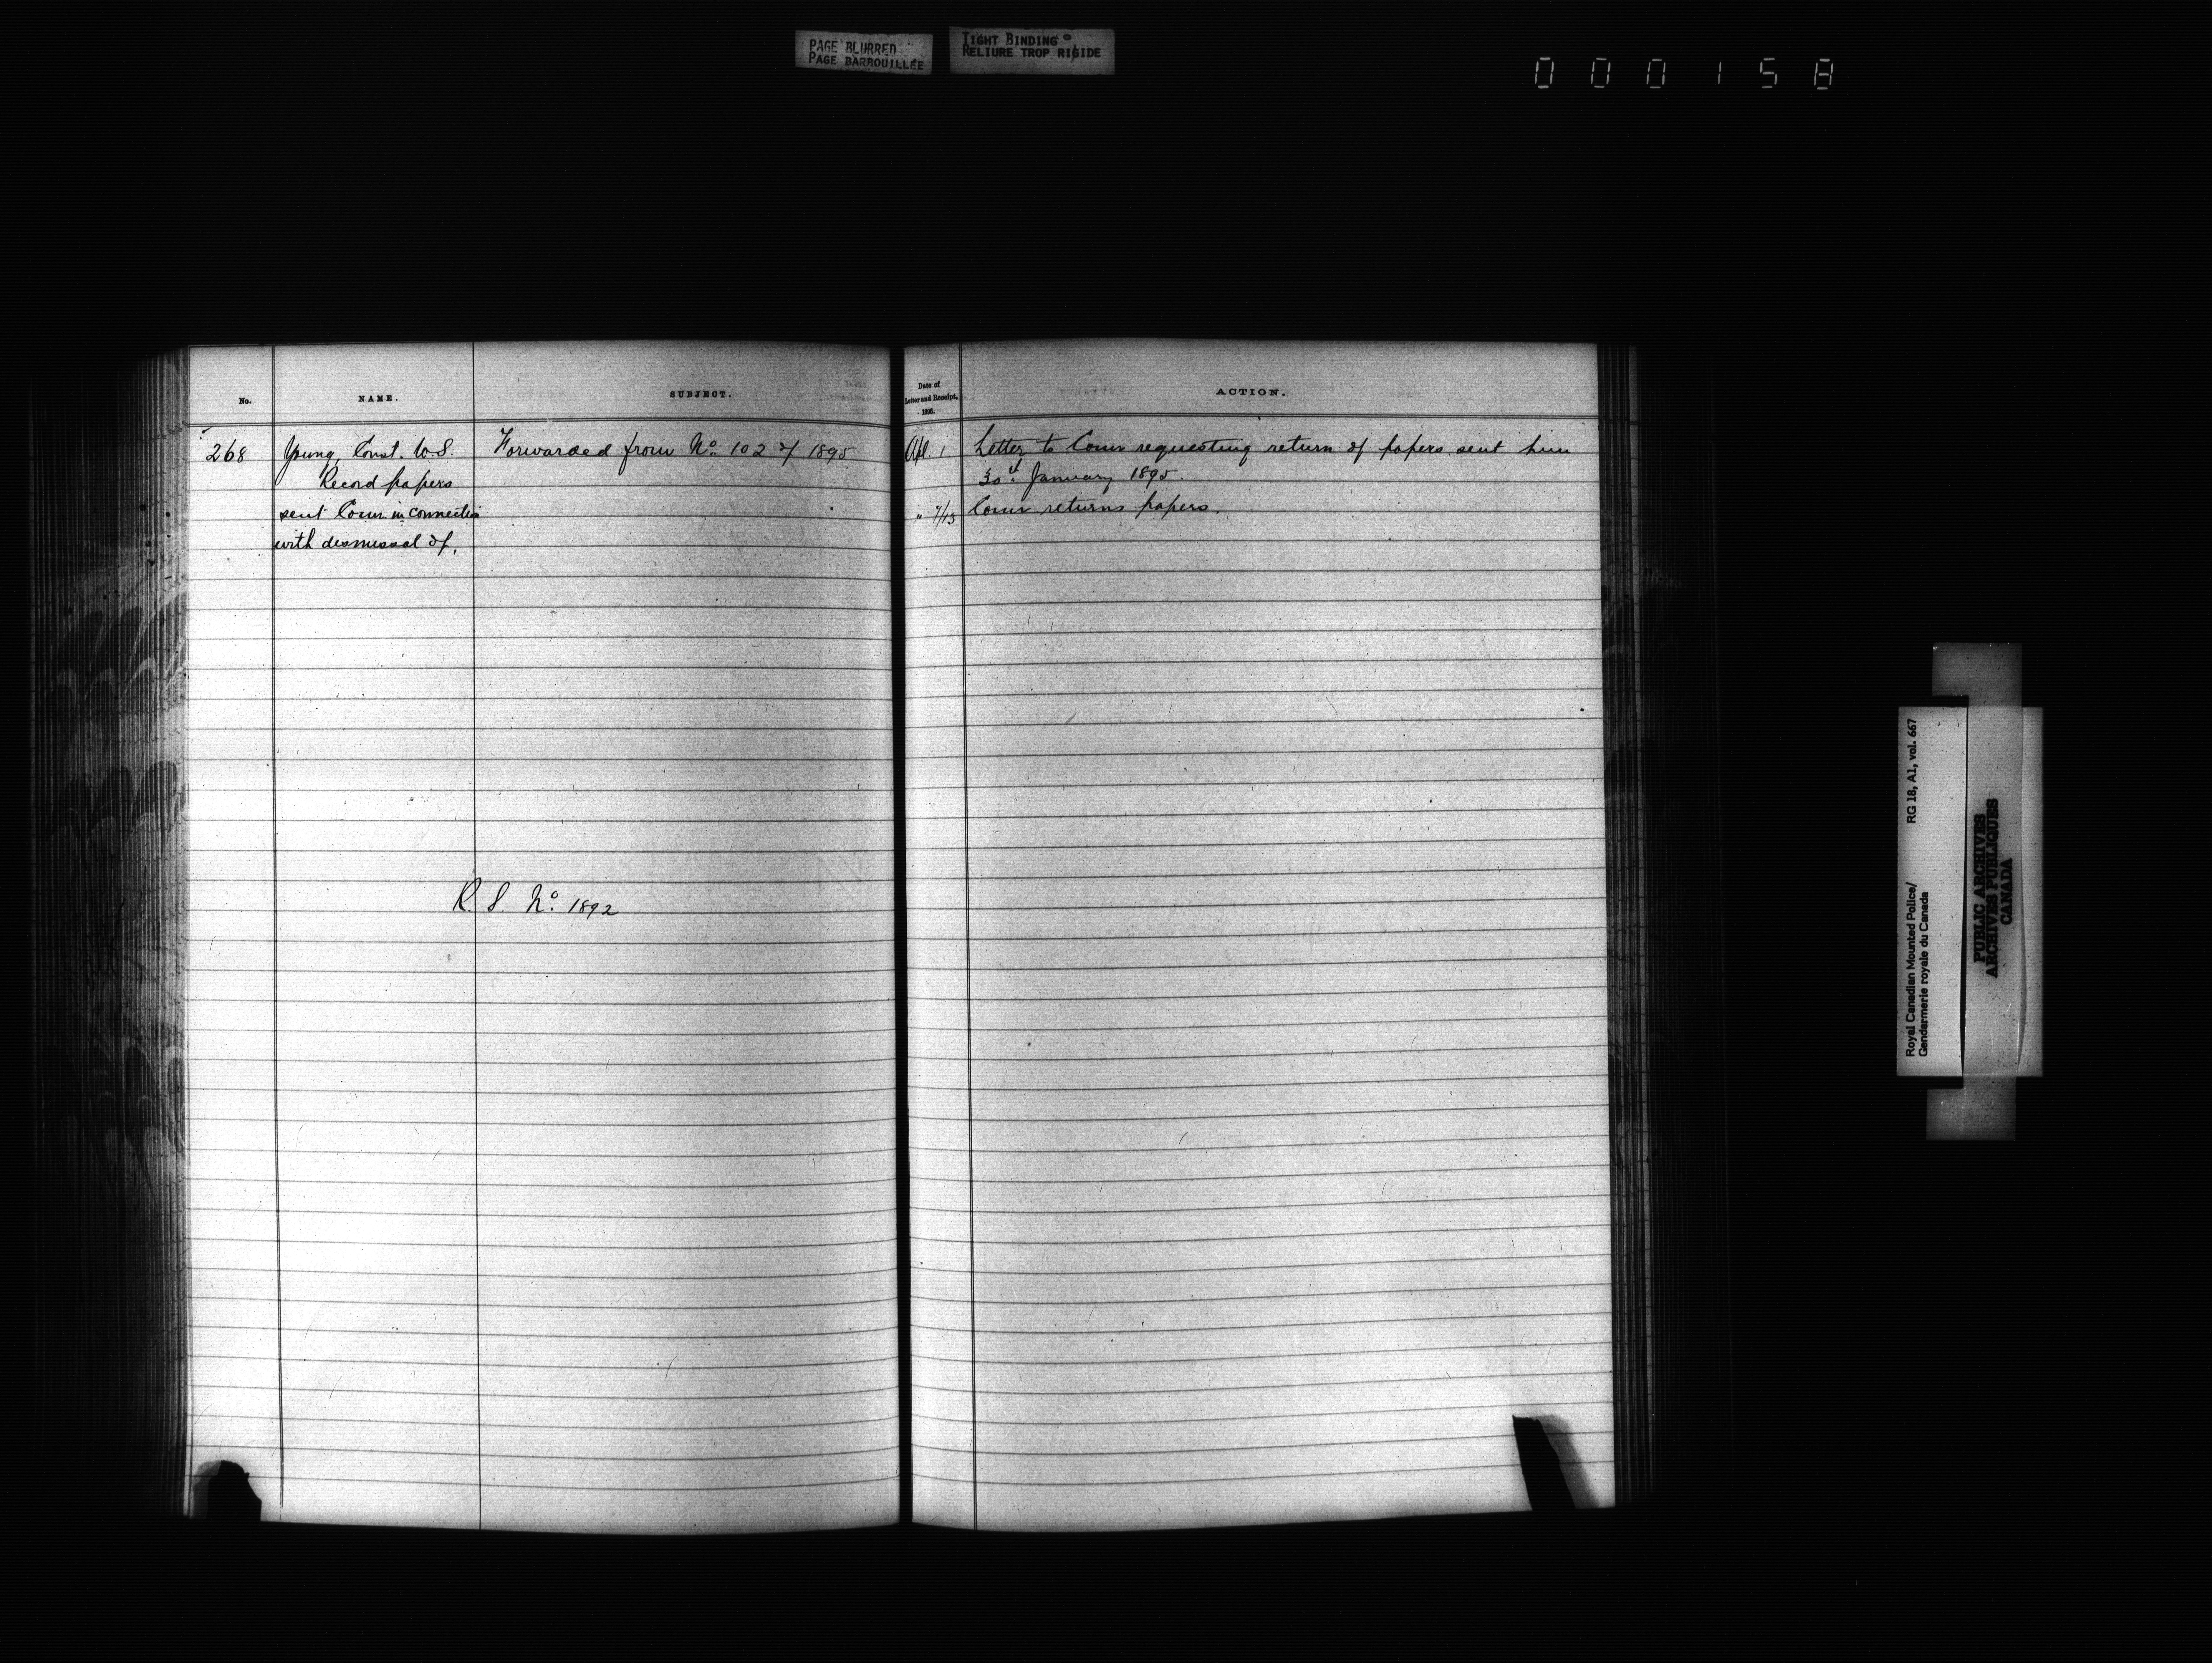 PAGE BLURRED
PAGE BARBOUILLÉE
TIGHT BINDING
RELIURE TROP RIGIDE
000158
No.
NAME.
SUBJECT.
Date of
Letter and Receipt,
1896.
ACTION.
268
Young, Const. W.S.
Record papers
sent Comr. in connection
with dismissal of.
Forwarded from No. 102 of 1895
Apl. 1
Letter to Comr requesting return of papers sent him
30th January 1895.
" 7/13
Comr returns papers.
R. S. No. 1892
Royal Canadian Mounted Police/
Gendarmerie royale du Canada
RG 18, A1, vol. 667
PUBLIC ARCHIVES
ARCHIVES PUBLIQUES
CANADA